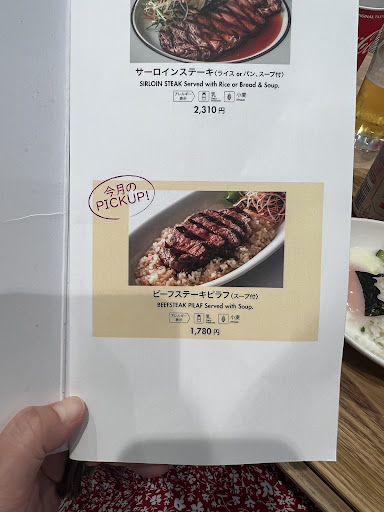 サーロインステーキ〈ライス or パン、スープ付〉
SIRLOIN STEAK Served with Rice or Bread & Soup.
アレルギー表示 乳 小麦
2,310円
今月の
PICKUP!
ビーフステーキピラフ〈スープ付〉
BEEFSTEAK PILAF Served with Soup.
アレルギー表示 乳 小麦
1,780円